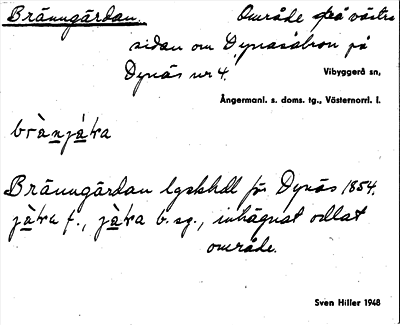 Bränngärdan. Område på västra
sidan om Dynäsåbron på
Dynäs nr 4. Vibyggerå sn,
Ångermanl. s. doms. tg., Västernorrl. l.
Bränngärdan lgskhdl för Dynäs 1854.
f., b. sg., inhägnat odlat
område.
Sven Hiller 1948